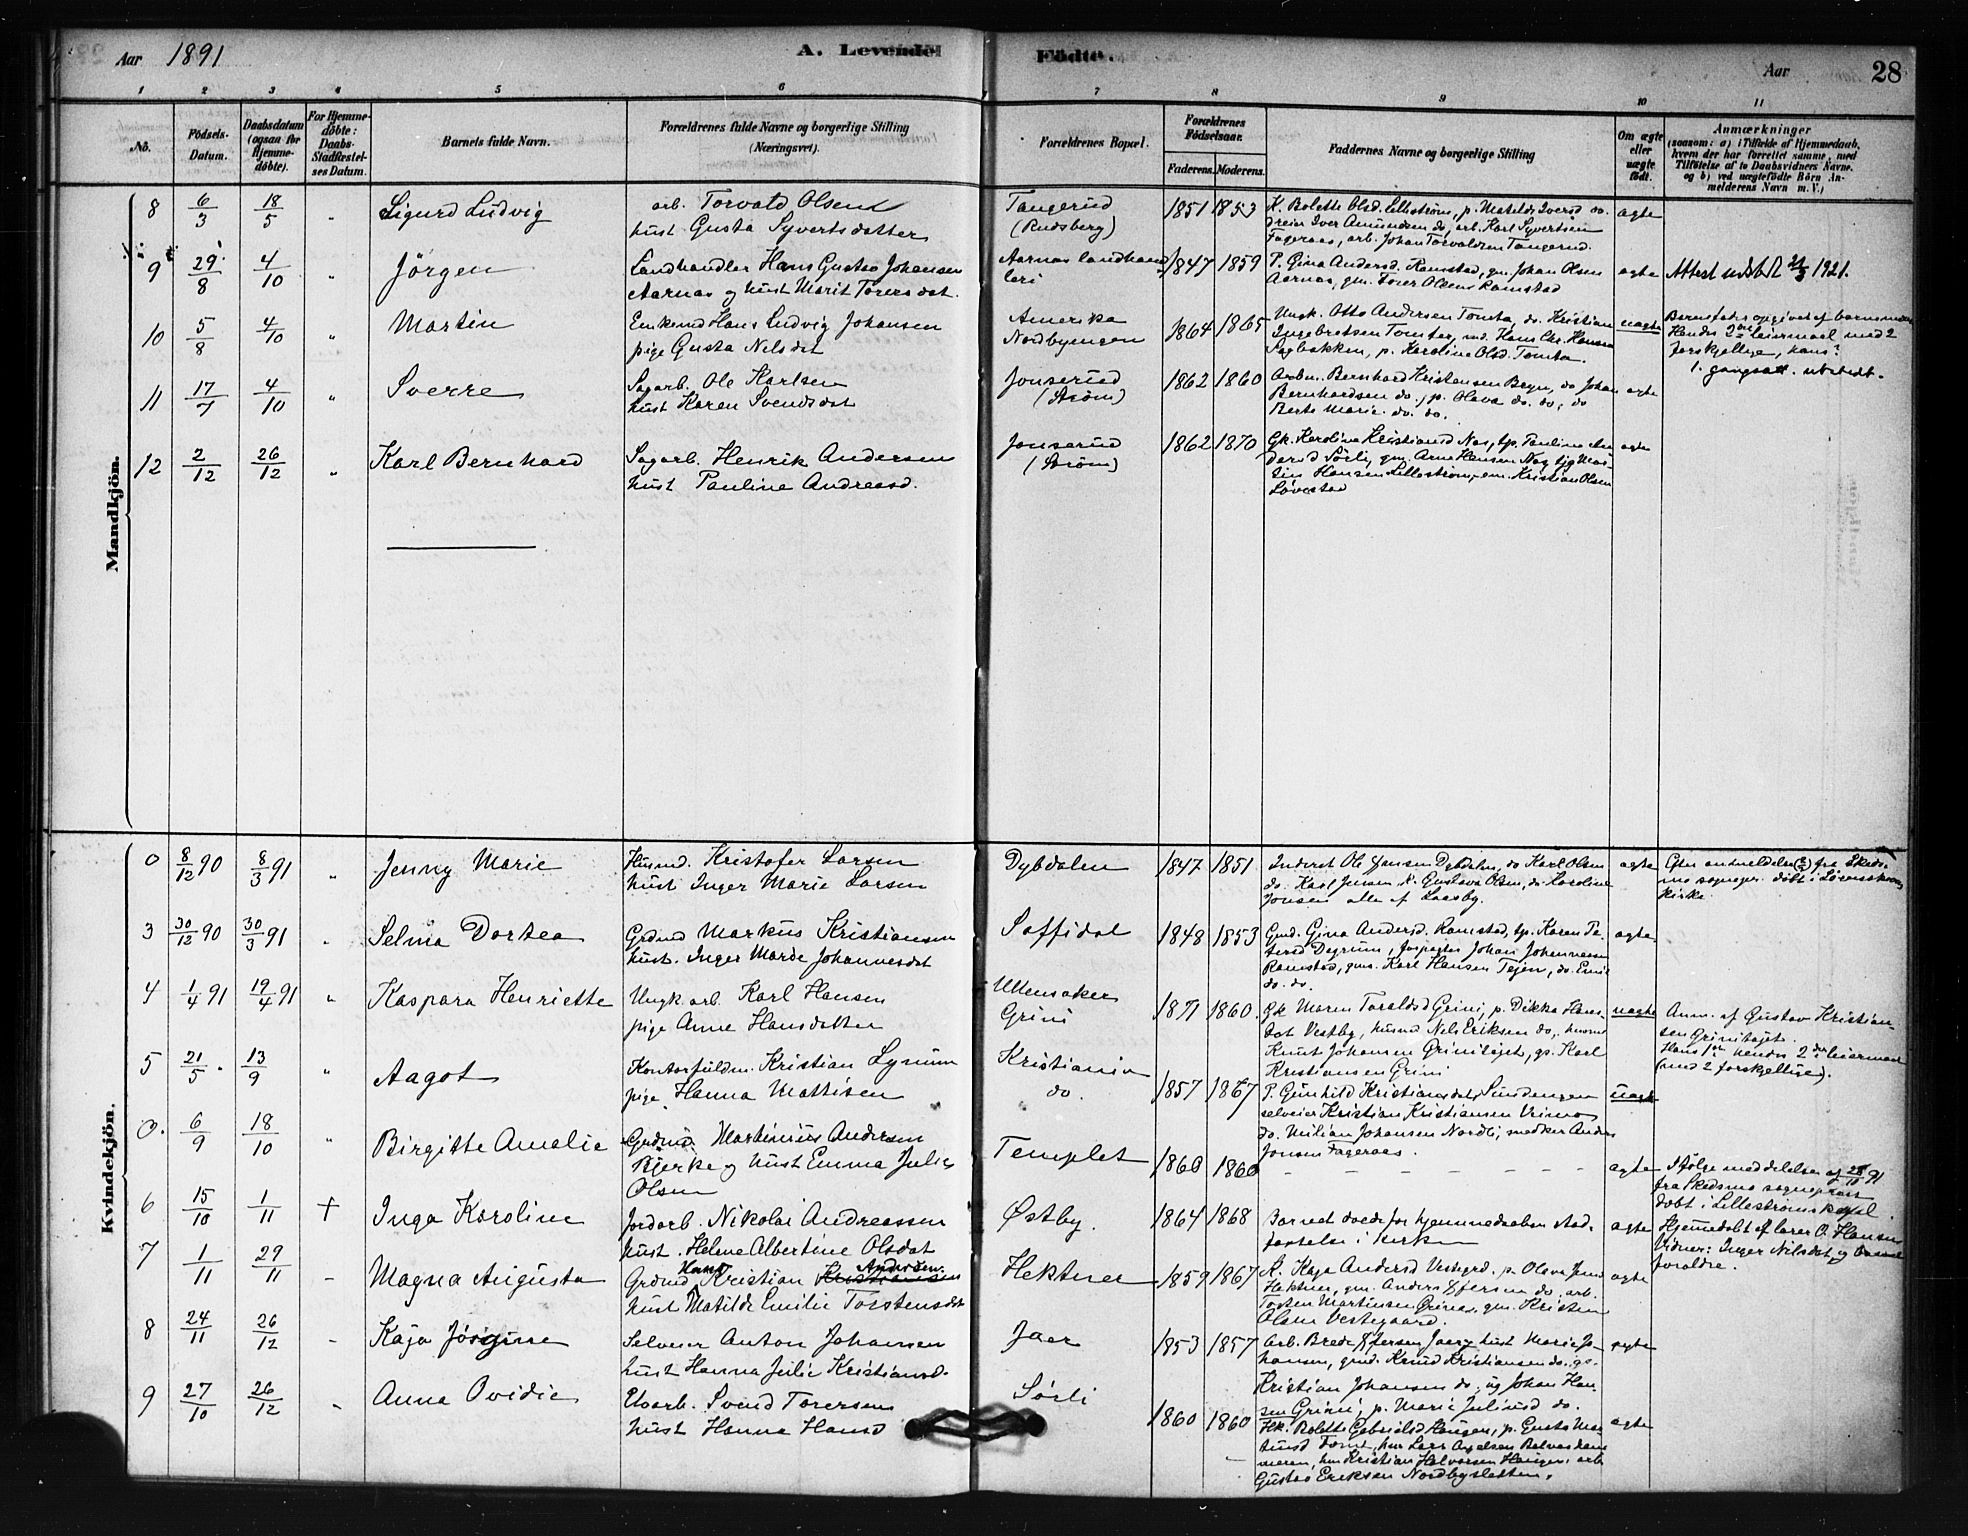 Aar 1891 A. Levende Födte. Aar 28
1 2 3 4 5 6 7 8 9 10 11
No. Födsels-Datum. Daabsdatum (ogsaa for Hjemmedöbte). For Hjemmedöbte: Daabs-Stadfæstelses Datum. Barnets fulde Navn. Forældrenes fulde Navne og borgerlige Stilling (Næringsvei). Forældrenes Bopæl. Forældrenes Födselsaar. Faderens. Moderens. Faddernes Navne og borgerlige Stilling Om ægte eller uægte födt. Anmærkninger (saasom: a) i Tilfælde af Hjemmedaab, hvem der har forrettet samme, med Tilföielse af to Daabsvidners Navne. og b) ved uægtefödte Börn Anmelderens Navn m. V.)
Mandkjön.
8 6/3 18/5 " Sigurd Ludvig
arb. Torvald Olsen
hust Gusta Syvertsdatter
Tangerud
(Rudsberg)
1851 1853
K. Bolette Olsd. Lillestrøm, p. Matilde Iversd do.
dreier Iver Amundsen do, arb. Karl Syvertsen
Fageraas, arb. Johan Torvaldsen Tangerud.
ægte
9 29/8 4/10 " Jörgen
Landhandler Hans Gustav Johansen
Aarnas og hust Marit Torersdat.
Aarnas landhand
leri
1847 1859
P. Gina Andersd. Ramstad, gm. Johan Olsen
Aarnas, gm. Torer Olsen Ramstad
ægte
Attest udstedt 21/3 1921.
10 5/8 4/10 " Martin
Enkemd Hans Ludvig Johansen
pige Gusta Nilsdat
Amerika
Nordbyengen
1864 1865
Ungk. Otto Andersen Tomta, do. Kristian
Ingebretsen Tomter, md. Hans Chr. Hansen
Sagbakken, p. Karoline Olsd. Tomta.
uægte
Barnefader opgivet af barnemoder
Hendes 2det leiermaal med 2
forskjellige, hans?
1. gangsatt. udstedt.
11 17/7 4/10 " Sverre
Sagarb. Ole Karlsen
hust Karen Svendsdat
Jonserud
(Strøm)
1862 1860
Bernhard Kristensen Bryn, do Johan
Bernhardsen do., p. Olava do. do, do
Berte Marie do. do.
ægte
12 2/12 26/12 " Karl Bernhard
Sagarb. Henrik Andersen
hust Pauline Andreasd.
Jonserud
(Strøm)
1862 1870
Gk. Karoline Kristiansd Nas, tp. Pauline An
dersd Sørli, gm. Arne Hansen Nas,
tin Hansen Lillestrøm, em. Kristian Olsen
Løvestad
ægte
Kvindekjön.
0 8/12 90 8/3 91 " Jenny Marie
Husmd. Kristofer Larsen
hust Inger Marie Larsen
Dybdalen
1847 1851
Inderst Ole Jensen Dybdalen, do Karl Olsen
do. Karl Jensen, k. Gustava Olsen, do Karoline
Jensen alle af Losby.
ægte
Efter anmeldelse fra Skeds
mo sognepr. døbt i Lørenskog
kirke.
3 30/12 90 30/3 91 " Selma Dortea
Grdmd Markus Kristiansen
hust. Inger Marie Johannesdat
Saffidal
1848 1853
Gmd. Gina Andersd. Ramstad, tp. Karen Pe
tersd Dyrum, forpagter Johan Johannesen
Ramstad, gms. Karl Hansen Tejen, do. Emil
do. do.
ægte
4 1/4 91 19/4 91 " Kaspara Henriette
Ungk. arb. Karl Hansen
pige Anne Hansdatter
Ullensaker
Grini
1871 1860.
Gk Maren Taraldsd Grini, p. Dikka Hans
dat Vestby, husmd Nils Eriksen do, husmd
Knut Johansen Grinitejet, gs. Karl
Kristiansen Grini
uægte
Anm. af Gustav Kristian
sen Grinitejet.
Hans 1ste hendes 2det leiermaal
(med 2 forskjellige).
5 21/5 13/9 " Aagot
Kontorfuldm. Kristian Lynum
pige Hanna Mathisen
Kristiania
do.
1857 1867
P. Gunhild Kristiansdat, Sundengen
selveier Kristian Kristiansen Vrimo
do. Milian Johansen Nordli, snedker Anders
Jonsen Fageraas.
uægte
0. 6/9 18/10 " Birgitte Amalie
Grdmd Martinius Andersen
Bjerke og hust Emma Julie
Olsen
Templet
1860 1860
- - - - - - -
ægte
Ifølge meddelelse af 28/11 91
fra Skedsmo sogneprest
døbt i Lillestrøms kapel.
6 15/10 1/11 + Inga Karoline
Jordarb. Nikolai Andreassen
hust. Helene Albertine Olsdat
Østby.
1864 1868
Barnet døde før hjemmedaabens stad
fæstelse i kirken
ægte
Hjemmedøbt af lærer O. Hansen
Vidner: Inger Nilsdat og barnets
foraldre.
7 1/11 29/11 - Magna Augusta
Grdmd Hans Kristian Kristiansen Andersen
hust Matilde Emilie Torstensdat
Hektner
1859 1867
K. Kaja Andersd Vestgrd. p. Olava Jensd
Hektner, gm. Anders Jensen do. arb.
Torsten Martinsen Grinas, gm. Kristian
Olsen Vestegaard.
ægte
8 24/11 26/12 - Kaja Jörgine
Selveier Anton Johansen
hust Hanna Julie Kristiansd.
Jaer
1853 1857
Arb. Brede Jensen Jaer, hust Marie Jo
hansen, gmd. Knud Kristiansen do. gs.
Kristian Johansen do, ug Johan Han
sen Grini, p. Marie Juliusd do.
ægte
9 27/10 26/12 - Anna Ovidie
Elvarb. Svend Torersen
hust Hanna Hansd
Sørli
1860 1860
Hk. Bolette Gabrielsd Haugen, p. Gusta Mar
tinsd Tomt, hm Lars Axelsen
meren, hm Kristian Halvorsen Haugen, arb
Gustav Eriksen Nordbysletten.
ægte